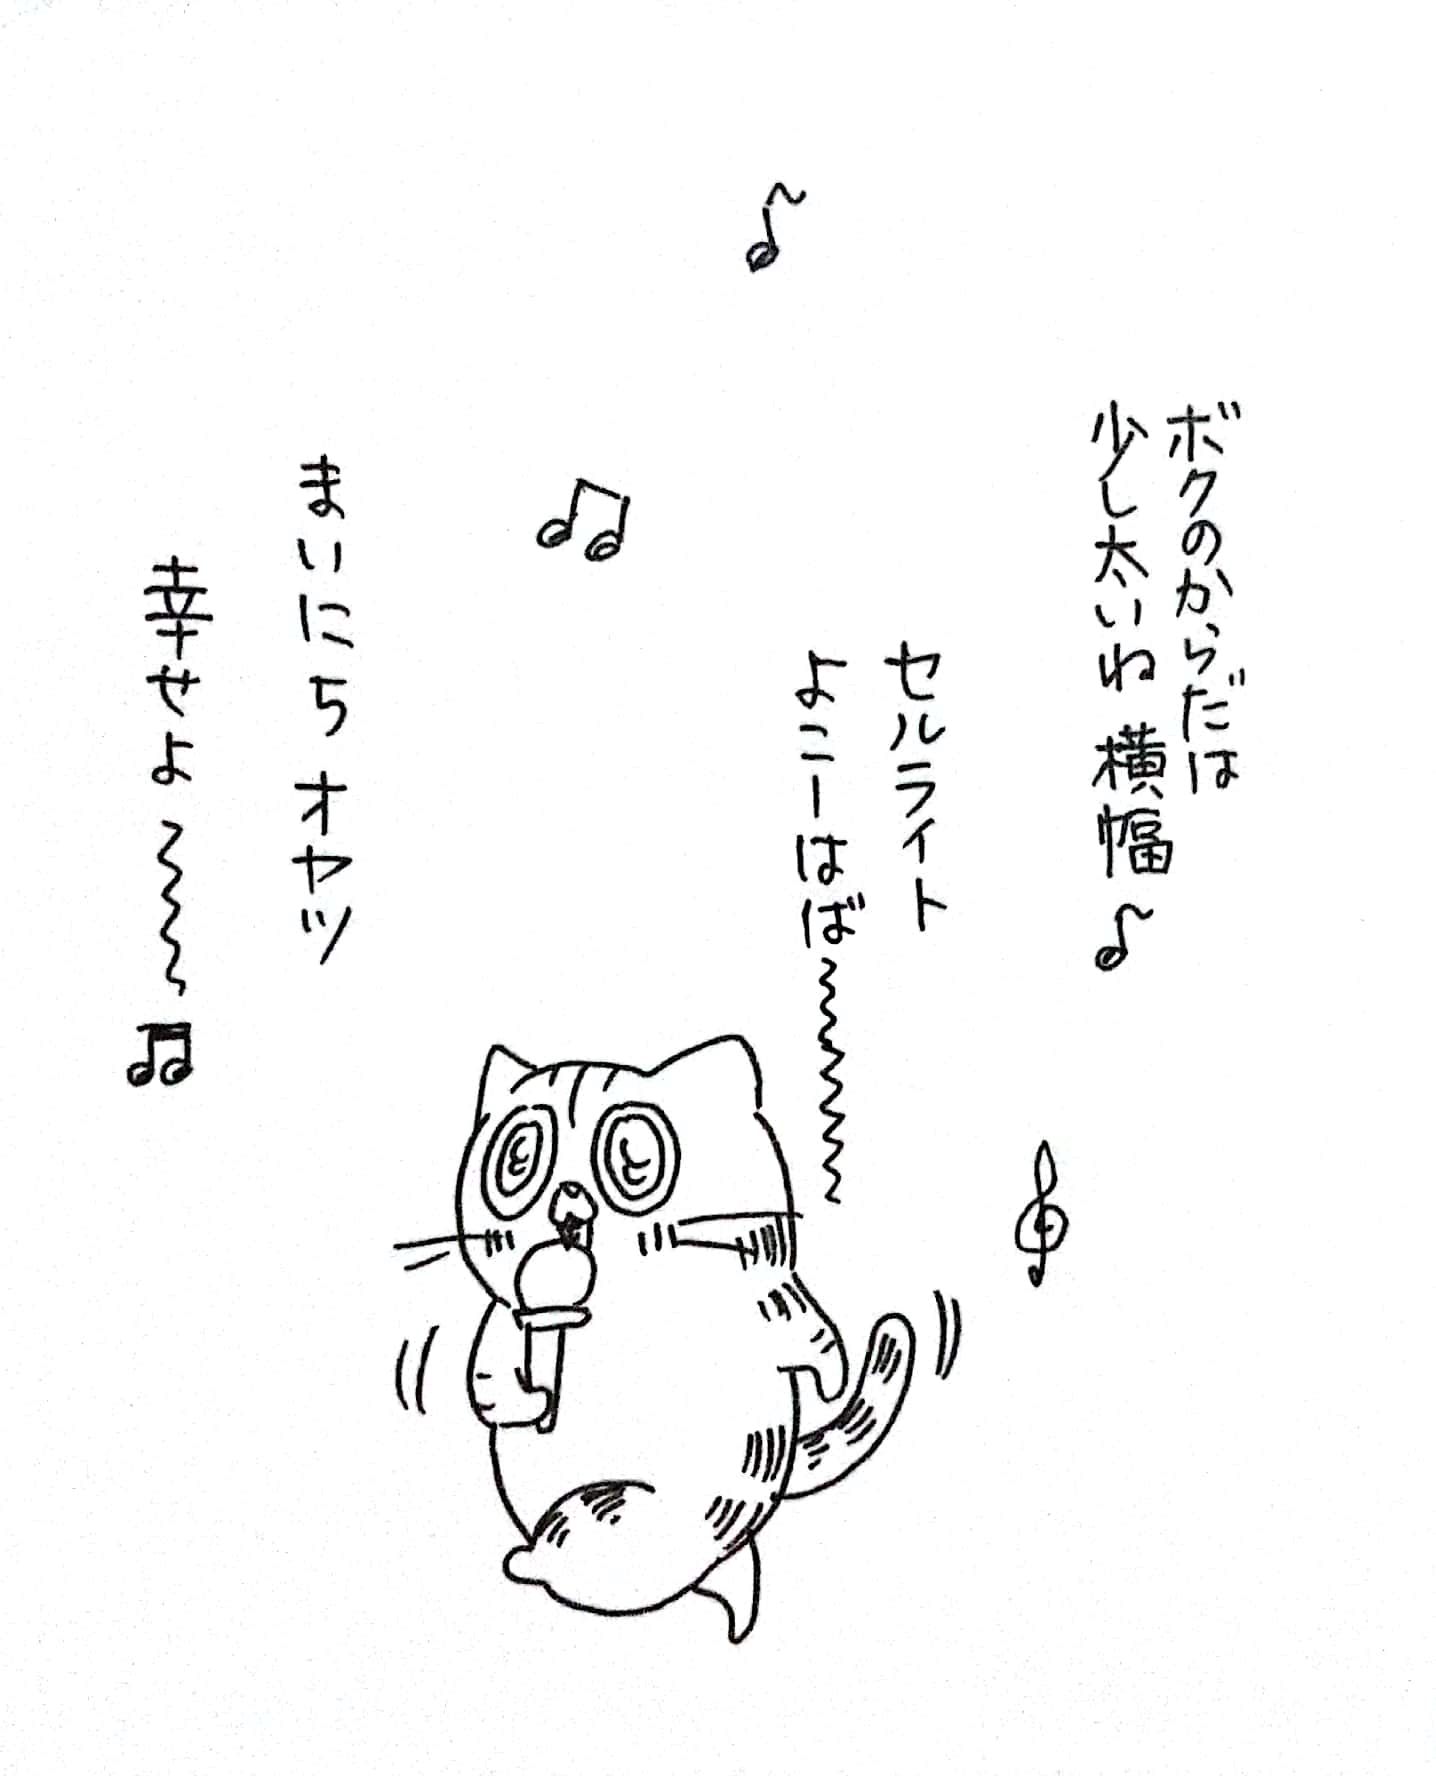 ボクのからだは
少し太いね 横幅♪
セルライト
よこーはば〜〜〜〜
まいにち オヤツ
幸せよ〜〜〜♫